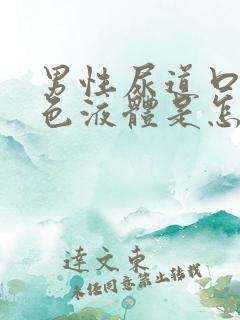 男性尿道口
色液體是怎
達文東
未經同意禁止轉載